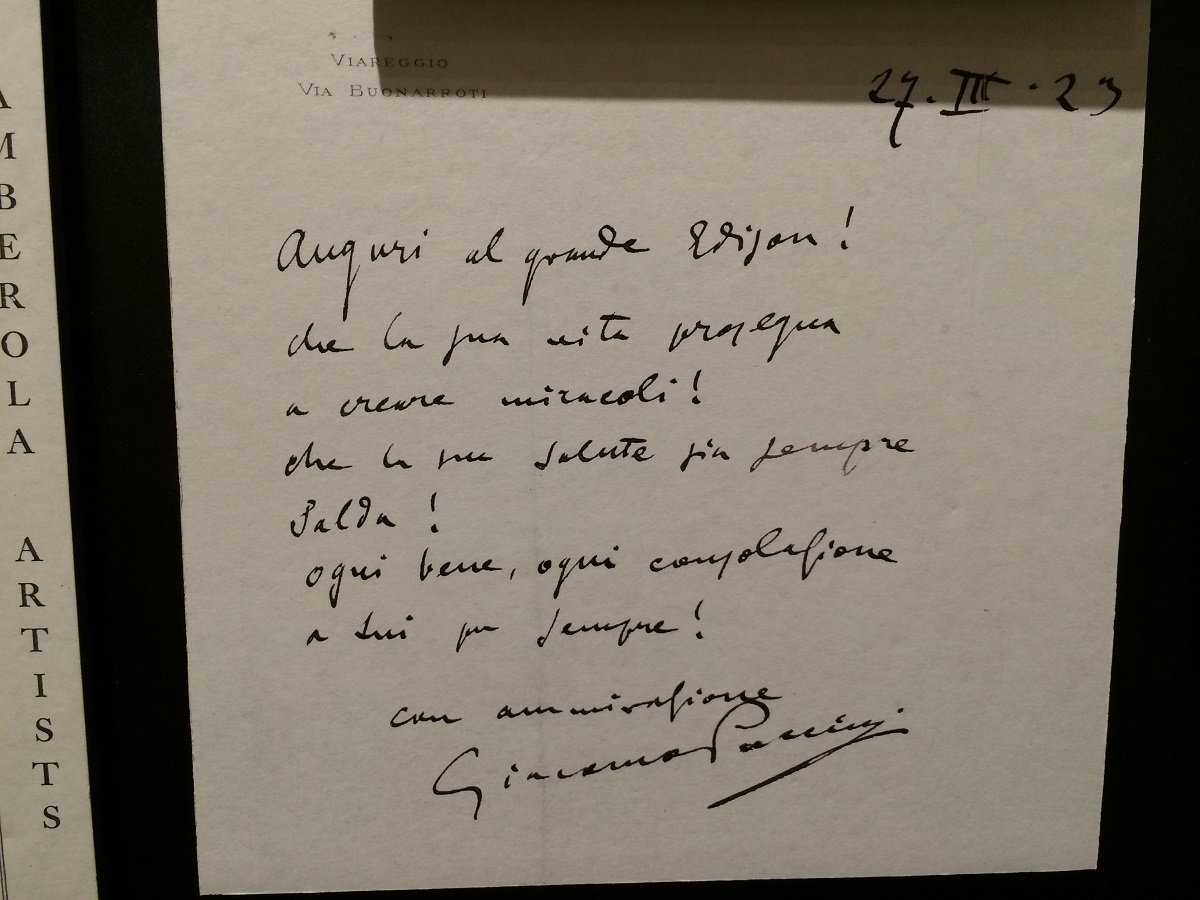 AMBEROLA ARTISTS
VIAREGGIO
VIA BUONARROTI
27. III. 23
Auguri al grande Edison!
che la sua vita prosegua
a creare miracoli!
che la sua salute sia sempre
salda!
ogni bene, ogni consolazione
a Lui per sempre!
con ammirazione
Giacomo Puccini